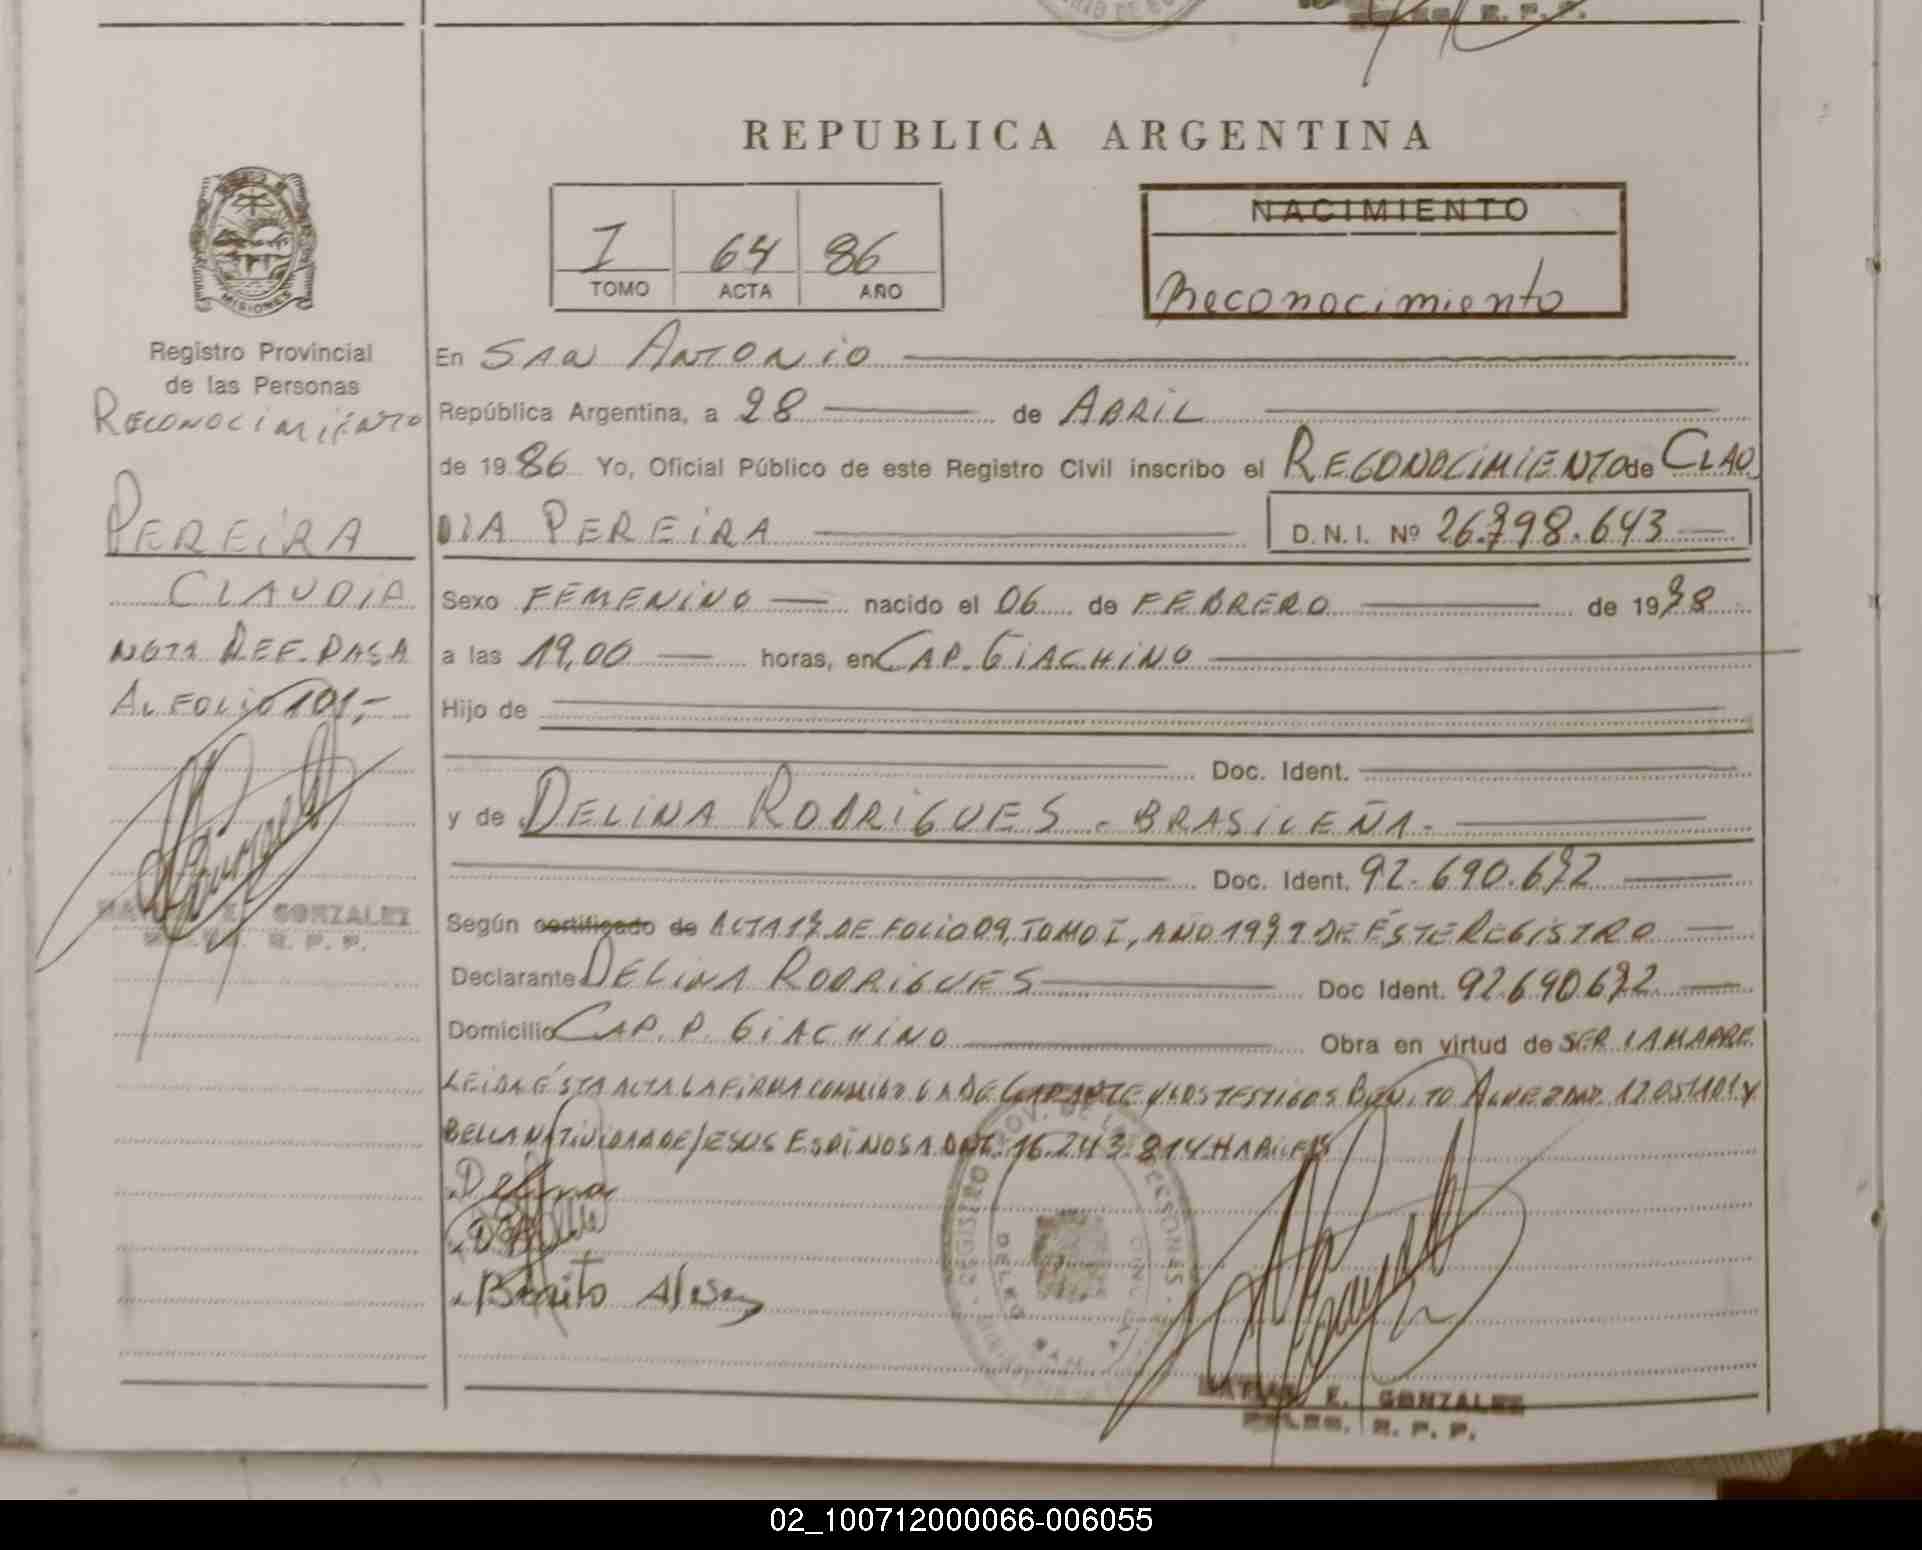 REPUBLICA ARGENTINA
MISIONES
I 64 86
TOMO ACTA AÑO
NACIMIENTO
Reconocimiento
Registro Provincial
de las Personas
RECONOCIMIENTO
PEREIRA
CLAUDIA
NOTA REF. PASA
AL FOLIO 101,-
E. GONZALEZ
R. P. P.
En SAN ANTONIO
República Argentina, a 28 de ABRIL
de 1986 Yo, Oficial Público de este Registro Civil inscribo el RECONOCIMIENTO de CLAU
DIA PEREIRA D.N.I. Nº 26.798.643
Sexo FEMENINO nacido el 06 de FEBRERO de 1978
a las 19,00 horas, en CAP. GIACHINO
Hijo de
Doc. Ident.
y de DELINA RODRIGUES - BRASILEÑA.-
Doc. Ident. 92.690.672
Según certificado de ACTA 17 DE FOLIO 09, TOMO I, AÑO DE ÉSTE REGISTRO
Declarante DELINA RODRIGUES Doc Ident. 92.690.672
Domicilio CAP. P. GIACHINO Obra en virtud de SER LA MADRE
LEIDA ÉSTA ACTA LA FIRMA CONMIGO LA DECLARANTE Y LOS TESTIGOS BENITO ALVEZ
BELLA NATIVIDAD DE JESUS ESPINOSA DNI. 16.243.814 HABILES
Delina
Benito Alves
REGISTRO PROV. DE LAS PERSONAS
MATIAS E. GONZALEZ
R. P. P.
02_100712000066-006055